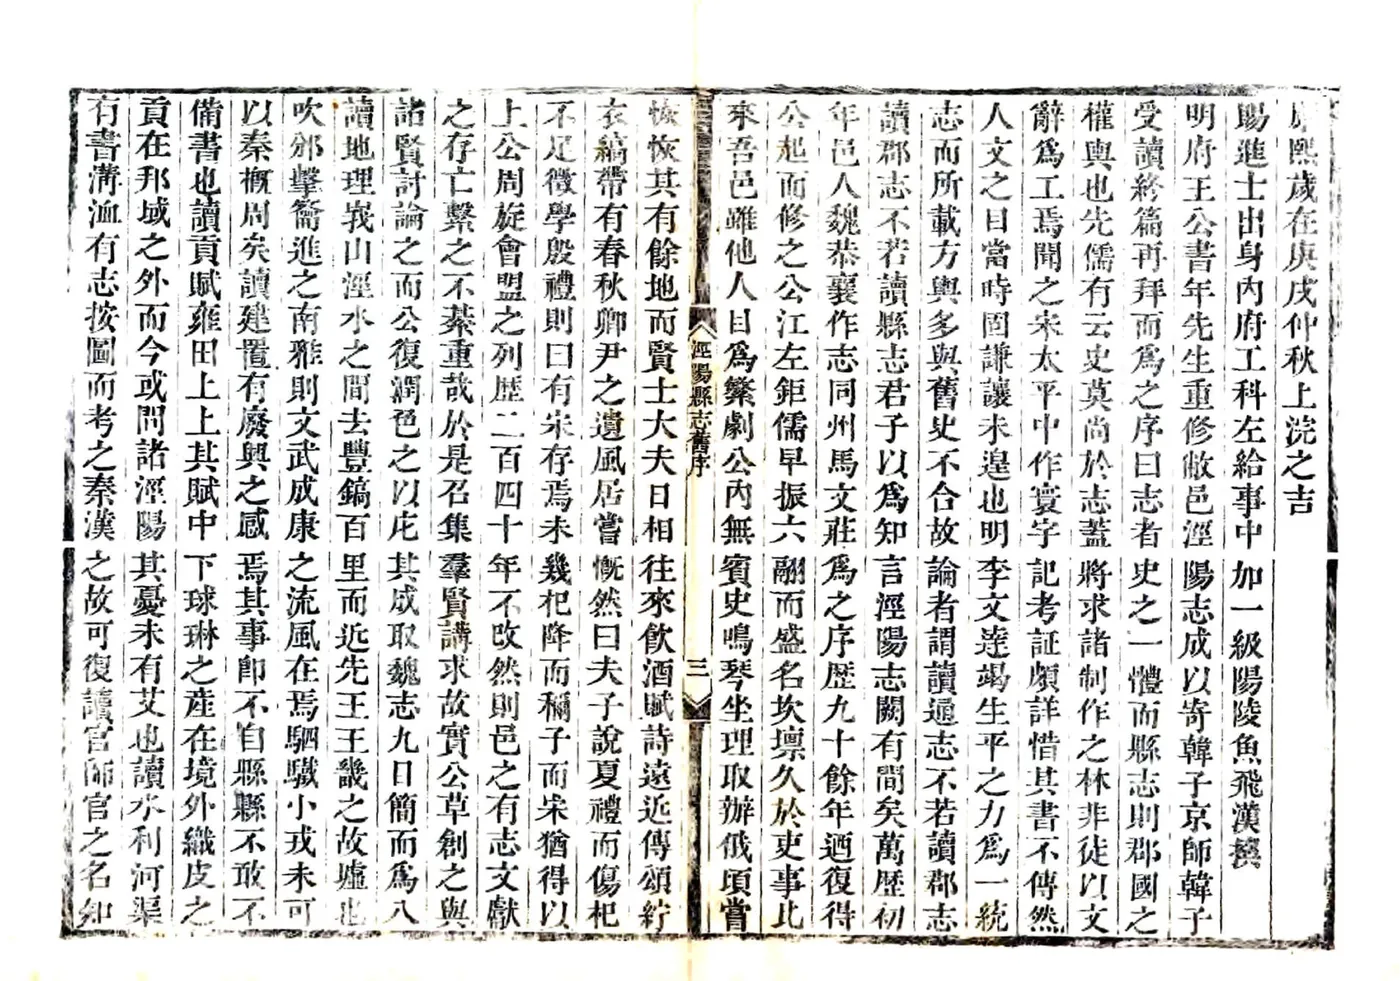 康熙歲在庚戌仲秋上浣之吉
賜進士出身內府工科左給事中加一級陽陵魚飛漢撰
明府王公書年先生重修敝邑涇陽志成以寄韓子京師韓子
受讀終篇再拜而爲之序曰志者史之一體而縣志則郡國之
權輿也先儒有云史莫尚於志蓋將求諸制作之林非徒以文
辭爲工焉聞之宋太平中作寰宇記考証頗詳惜其書不傳然
人文之日當時固謙讓未遑也明李文達竭生平之力爲一統
志而所載方輿多與舊史不合故論者謂讀通志不若讀郡志
讀郡志不若讀縣志君子以爲知言涇陽志闕有間矣萬歷初
年邑人魏恭襄作志同州馬文莊爲之序歷九十餘年迺復得
公起而修之公江左鉅儒早振六翮而盛名坎壈久於吏事比
來吾邑雖他人目爲繁劇公內無賓史鳴琴坐理取辦俄頃嘗
涇陽縣志舊序
三
恢恢其有餘地而賢士大夫日相往來飲酒賦詩遠近傳頌紵
衣縞帶有春秋卿尹之遺風居嘗慨然曰夫子說夏禮而傷杞
不足徵學殷禮則曰有宋存焉未幾杞降而稱子而宋猶得以
上公周旋會盟之列歷二百四十年不改然則邑之有志文獻
之存亡繫之不綦重哉於是召集羣賢講求故實公草創之與
諸賢討論之而公復潤色之以庀其成取魏志九日簡而爲八
讀地理峩山涇水之間去豐鎬百里而近先王王畿之故墟也
吹邠擊籥進之南雅則文武成康之流風在焉駟驖小戎未可
以秦概周矣讀建置有廢興之感焉其事卽不自縣縣不敢不
備書也讀貢賦雍田上上其賦中下球琳之産在境外織皮之
貢在邦域之外而今或問諸涇陽其憂未有艾也讀水利河渠
有書溝洫有志按圖而考之秦漢之故可復讀官師官之名知